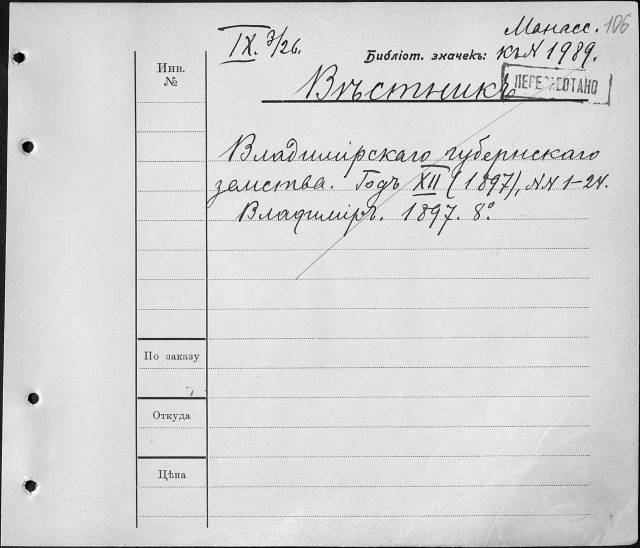 Манасс. 106
IX. 3/26. Библіот. значекъ: къ N 1989.
Инв. №
Вѣстникъ ПЕРЕРАБОТАНО
Владимірскаго губернскаго
земства. Годъ XII (1897), NN 1-24.
Владиміръ. 1897. 8º.
По заказу
Откуда
Цѣна